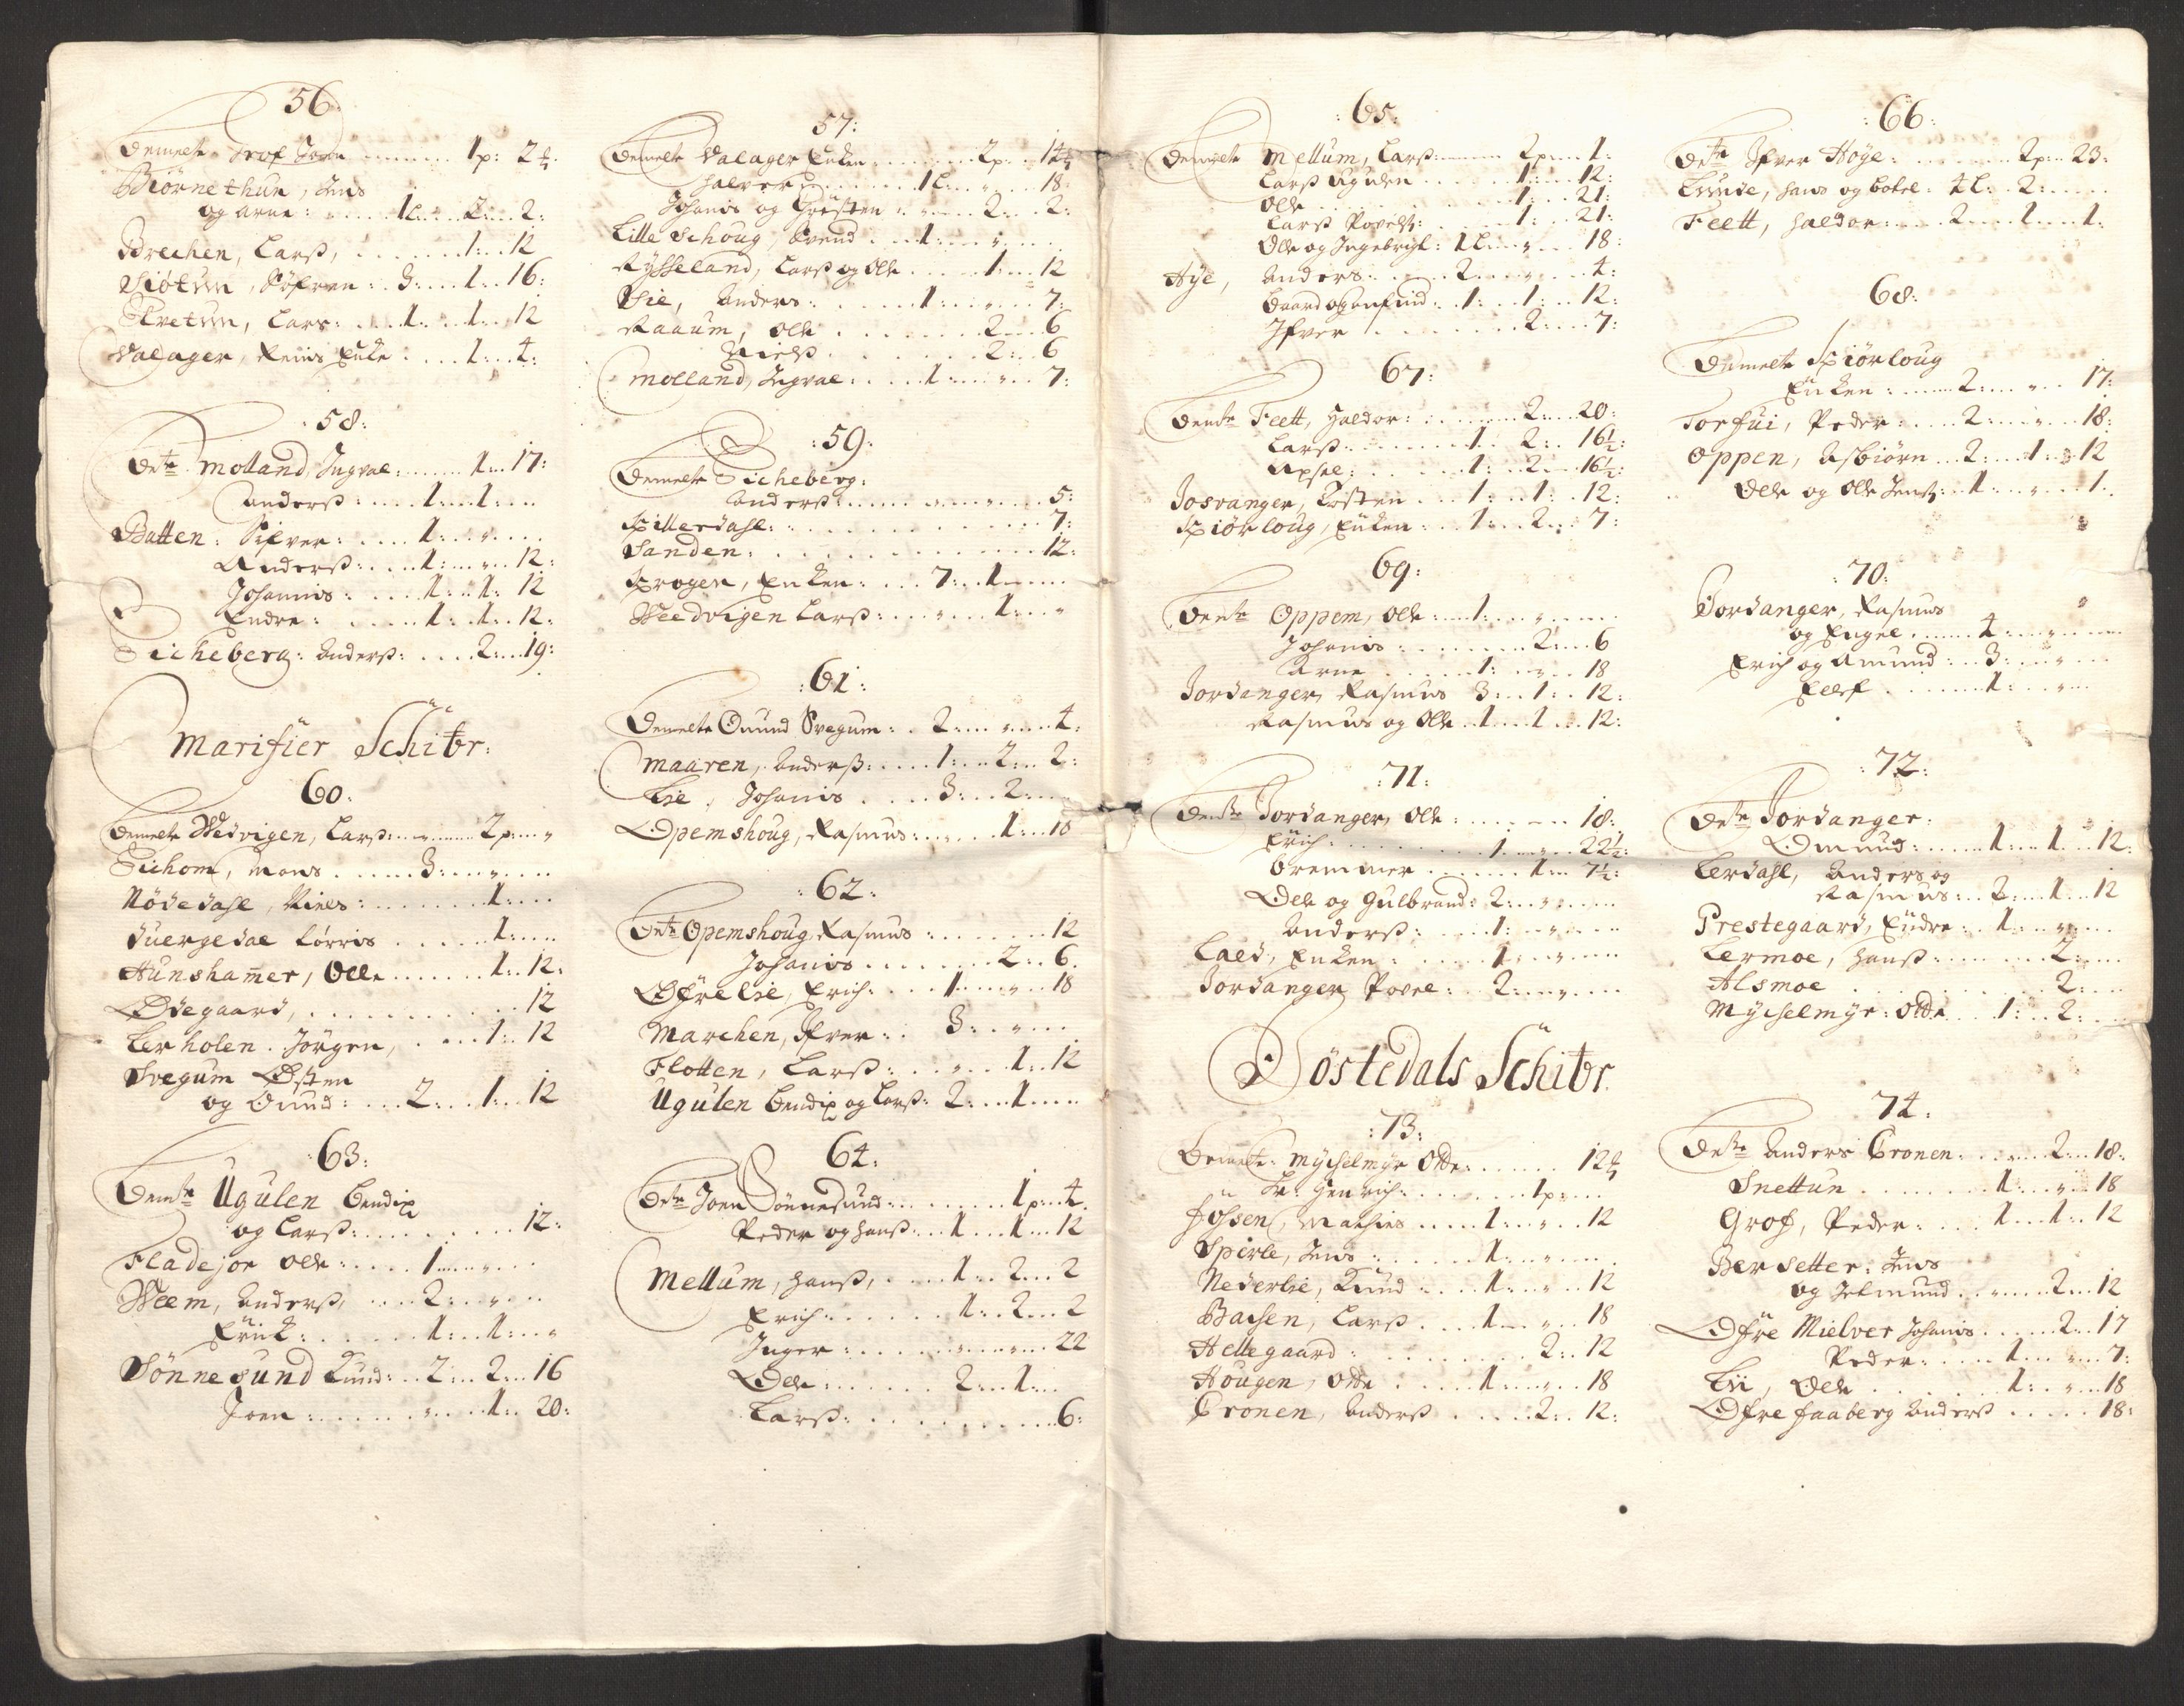 56
Bemelte Grof Joen ...... 1p: 2 ß
Biørnethun, Jens
og Arne: ..... 1L ... 2 ... 2:
Brechen, Larß, ...... 1: .. 12
Siøtun, Søfren: . 3: ... 1: . 16:
Qvetun, Lars: .... 1: .. 1: . 12
Valager, Reins Enke .... 1: .. 4:
:58:
Bete Molland, Ingval: ..... 1: .. 17:
Anderß: .... 1: ... 1: ...
Batten: Sifver: .... 1: .. " ....
Anderß: ... 1: .. " .. 12:
Johannis: .... 1: .. 1: . 12
Endre: ..... 1: .. 1: .. 12:
Eicheberg: Anderß: .... 2: .. 19:
Marifier Schibr:
60:
Bemelte Wedvigen, Larß: .. " .... 2p: .. "
Eichom, Mons ..... 3: ... " ....
Nödedahl, Niels: ...... 1: ...
Duergedal Lörris ..... 1: ...
Hunshamer, Olle ..... 1: .. 12:
Ødegaard, ........... 12
Lerholen. Jörgen, .... 1: .. 12
Svegum Østen
og Ound: ... 2: ... 1: .. 12
:63:
Bemte Ugulen Bendix
og Larß: ........ 12:
Fladejor Olle: .... 1 .... " ...
Weem, Anderß, ... 2: .. " ...
Erick: ...... 1: .. 1: .. "
Sönnesund Knud: .. 2: .. 2: .. 16
Joen: ....... " ... 1: .. 20:
57:
Bemelte Valager Enken ........ 2p: .. 14 ß
Halvor ...... 1L ... " ... 18:
Johanis og Torsten: .. " ... 2: .. 2:
Lille Schoug, Svend ... 1: ... " ....
Rysseland, Larß og Olle ..... 1: .. 12
Lie, Anders: ...... 1: ... " ... 7:
Raaum, Olle ........ 2: .. 6
Nielß ........ 2: .. 6
Molland, Ingval: ..... 1: ... " ... 7:
:59:
Bemelte Eicheberg:
Anderß: ........ " .... 5:
Spillerdahl: ............ 7:
Sanden: ............. 12:
Krogen, Enken: ... 7: .. 1: ....
Weedvigen Larß: ... " ... 1: .. "
:61:
Bemelte Ound Svegum: .. 2: ... " ... 4:
Maaren, Anderß: .... 1: .. 2: .. 2:
Lie, Johanis .... 3: ... 2: ...
Opemshoug, Rasmus: .. " ... 1: .. 18
:62:
Bete Opemshoug Rasmus: ...... 12
Johanis ....... 2: .. 6.
Øfrelie, Erich: ... 1: ... " .. 18
Marchen, Ifver: .. 3: .. " ...
Flotten, Larß: ... " ... 1: .. 12
Ugulen Bendix og Larß: 2: ... 1: ...
64:
Bete Joen Sönnesund: ..... 1p: .. 4.
Peder og Hanß: ... 1: ... 1: .. 12
Mellum, Hanß, .... 1: .. 2: .. 2
Erich: ...... 1: .. 2: .. 2
Inger: ..... " ... " ... 22
Olle: ...... 2: .. 1: ..
Larß: .......... 6:
:65:
Bemelte Mellum, Larß: ..... 2p: ... 1:
Larß Ugulen ..... 1: ... 12:
Olle ........ 1: .. 21:
Larß Povelß: ..... 1: .. 21:
Olle og Ingebrigt: 1L: .. " ... 18:
Hye, Anders: ... 2: .. " ... 4:
Baard og Anfind: .. 1: .. 1: .. 12:
Ifver ........ 2: .. 7:
67:
Bemte Feett, Haldor: ...... 2: .. 20:
Larß: ....... 1: . 2: .. 16½:
Axsel: ...... 1: .. 2: .. 16½:
Josvanger, Tosten ... 1: .. 1: .. 12:
Skiörloug, Enken: .. 1: .. 2: .. 7:
69:
Bemte Oppem, Olle: ... 1: ... " ....
Johanis: ....... 2: .. 6
Arne ...... 1: .. " .. 18
Jordanger, Rasmus 3: .. 1: .. 12:
Rasmus og Olle .. 1: ... 1: .. 12:
:71:
Bemte Jordanger, Olle: ..... .. 18:
Erich: ........ 1 ... " ... 22½:
Bremmer ...... 1: .. 7½:
Olle og Gulbrand: 2: .. " ....
Anderß: .... 1: .. " ....
Laed, Enken: ..... 1: .. " ....
Jordanger Povel: .. 2: ... " ....
Jostedals Schibr.
:73:
Bemelte: Mychelmyr Olle: ..... 12 ß
Hr: Henrich: ....... 1p: ...
Fossen, Mathies .... 1: .. " .. 12
Sperle, Jens: ...... 1: .. " ....
Nederlie, Knud .... 1: .. " .. 12
Bachen, Larß .... 1: .. " .. 18
Hellegaard: ........ 2: .. 12
Hougen, Olle .... 1: .. " .. 18
Cronen, Anderß ..... 2: .. 12:
:66:
Bete Ifver Høye: ....... 2p: .. 23:
Lunde, Hans og Botel: 4L: .. 2: ....
Feett, Haldor: .... 2: ... 1: ... 1:
68:
Bemelte Skiörloug
Enken: ..... 2: ... " ... 17:
Torfui, Peder: .... 2: .. " ... 18:
Oppen, Asbiörn .. 2: ... 1: .. 12
Olle og Olle Jenß: .. 1: .. " ... 1:
:70:
Jordanger, Rasmus
og Engel ..... 4: ... " ....
Erich og Amund: .. 3: .. " ...
Ellef ...... 1: .. " ...
:72:
Bete Jordanger:
Omund: ..... 1: .. 1: .. 12:
Lerdahl, Anders og
Rasmus: .. 2: ... 1: .. 12
Prestegaard, Endre: .. 1: ... " ...
Lermoe, Hanß ....... 2: ...
Alsmoe .......... 2: ...
Mychelmyr: Olle ... 1: .. 2: ..
74:
Bete Anders Cronen: ..... 2: .. 18:
Snettun ....... 1: .. " .. 18
Grof, Peder: .... 1: .. 1: .. 12
Bersetter: Jens
og Jelmund .. " ... 2: .. 12
Øfre Mielver Johanis ..... 2: .. 17
Peder: .... 1: ... " ... 7:
Lii, Olle ...... 1: .. " .. 18
Øfre Faaberg Anders ..... 18: